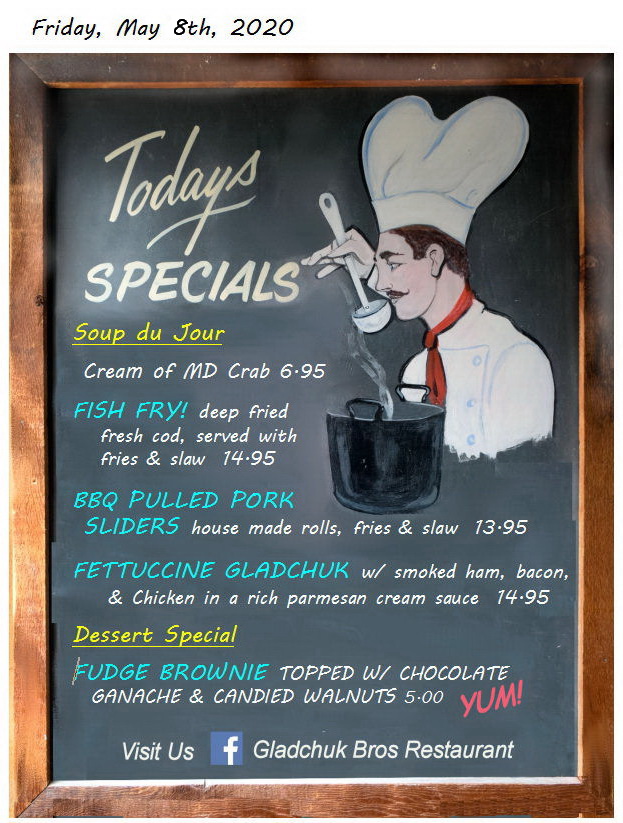 Friday, May 8th, 2020
Todays
SPECIALS
Soup du Jour
Cream of MD Crab 6.95
FISH FRY! deep fried
fresh cod, served with
fries & slaw 14.95
BBQ PULLED PORK
SLIDERS house made rolls, fries & slaw 13.95
FETTUCCINE GLADCHUK w/ smoked ham, bacon,
& Chicken in a rich parmesan cream sauce 14.95
Dessert Special
FUDGE BROWNIE TOPPED W/ CHOCOLATE
GANACHE & CANDIED WALNUTS 5.00 YUM!
Visit Us f Gladchuk Bros Restaurant